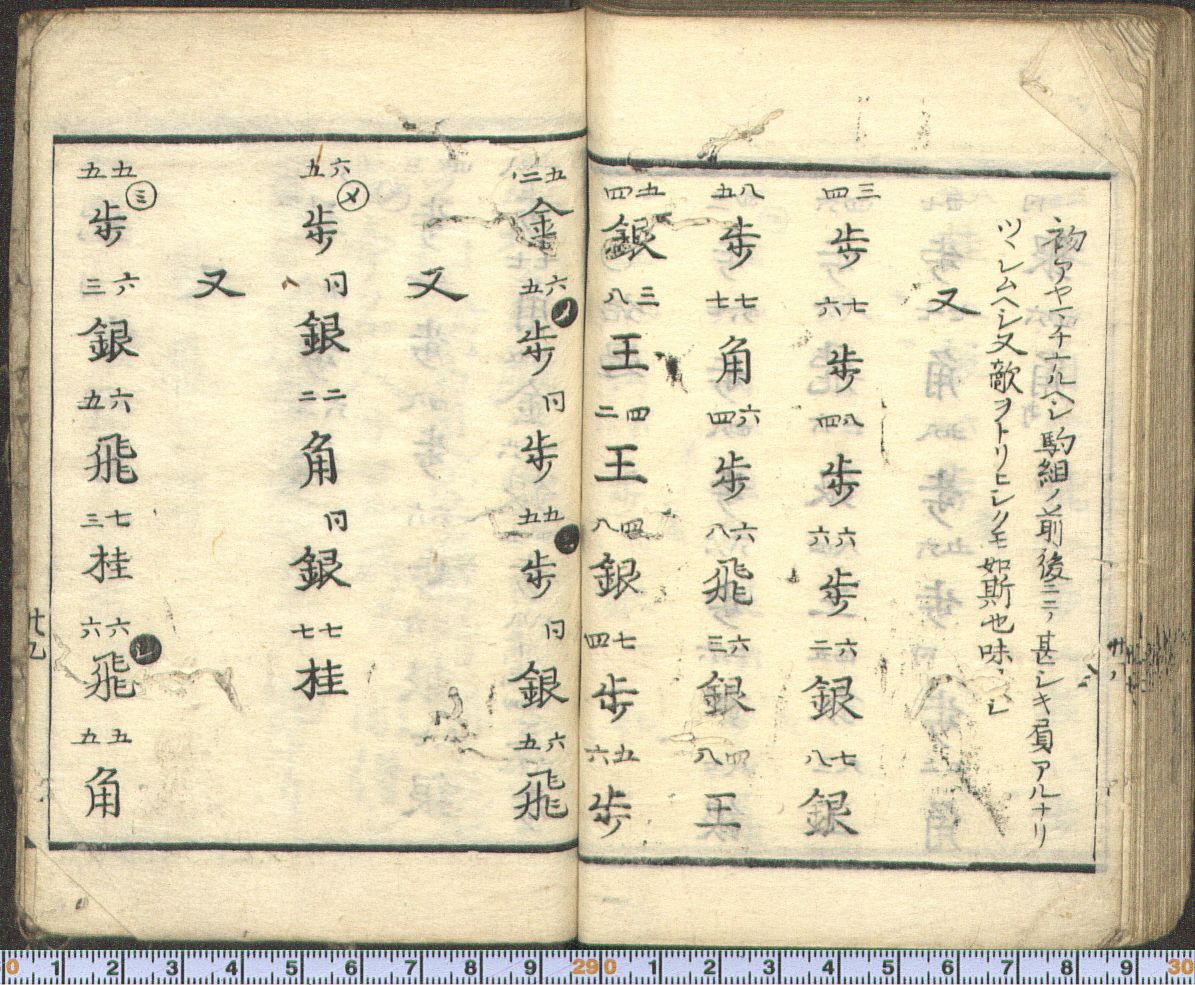 初アヤマチナルヘシ駒組ノ前後ニテ甚シキ負アルナリ
ツヽシムヘシ又敵ヲトリヒシクモ如斯也味ヘシ
又
三四歩 七六歩 八四歩 六六歩 六二銀 七八銀
八五歩 七七角 六四歩 六八飛 六三銀 四八王
五四銀 三八王 四二王 四八銀 七四歩 五六歩
五二金 六五歩 同歩 五五歩 同銀 六五飛
又
六五歩 同銀 二二角 同銀 七七桂
又
五五㊂歩 六三銀 六五飛 七三桂 六六飛 五五角
廿九
0 1 2 3 4 5 6 7 8 9 290 1 2 3 4 5 6 7 8 9 30